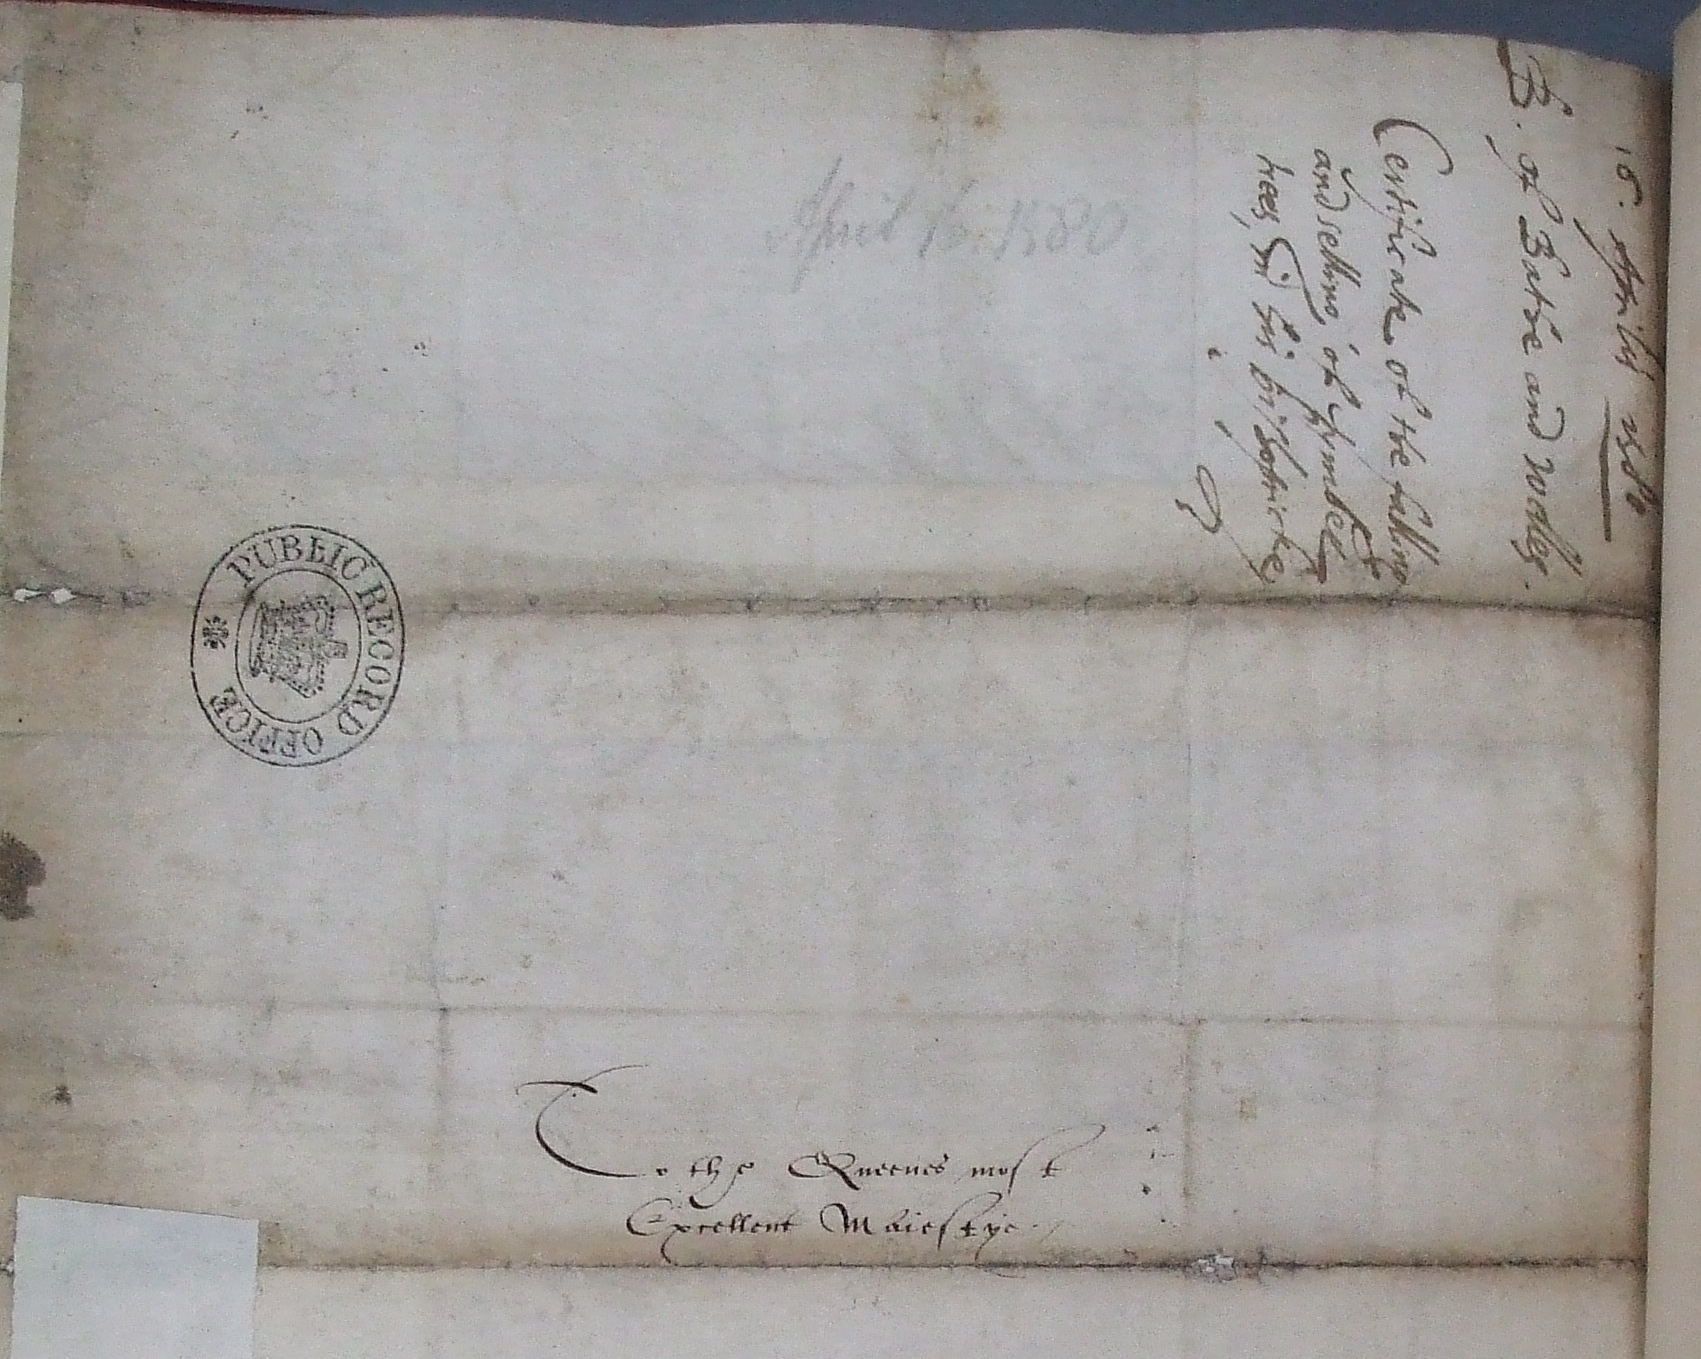 16. Aprilis 1580
B. of Bathe and Welles.
Certificate of the falling
and selling of tymber
trees, in his bishopricke
April 16. 1580
PUBLIC RECORD OFFICE
To the Queenes most
Excellent Maiestye